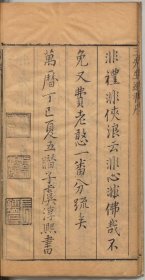 非禮非俠浪云非心非佛哉不
免又費老憨一番分疏矣
萬曆丁巳夏五潛子虞淳熙書